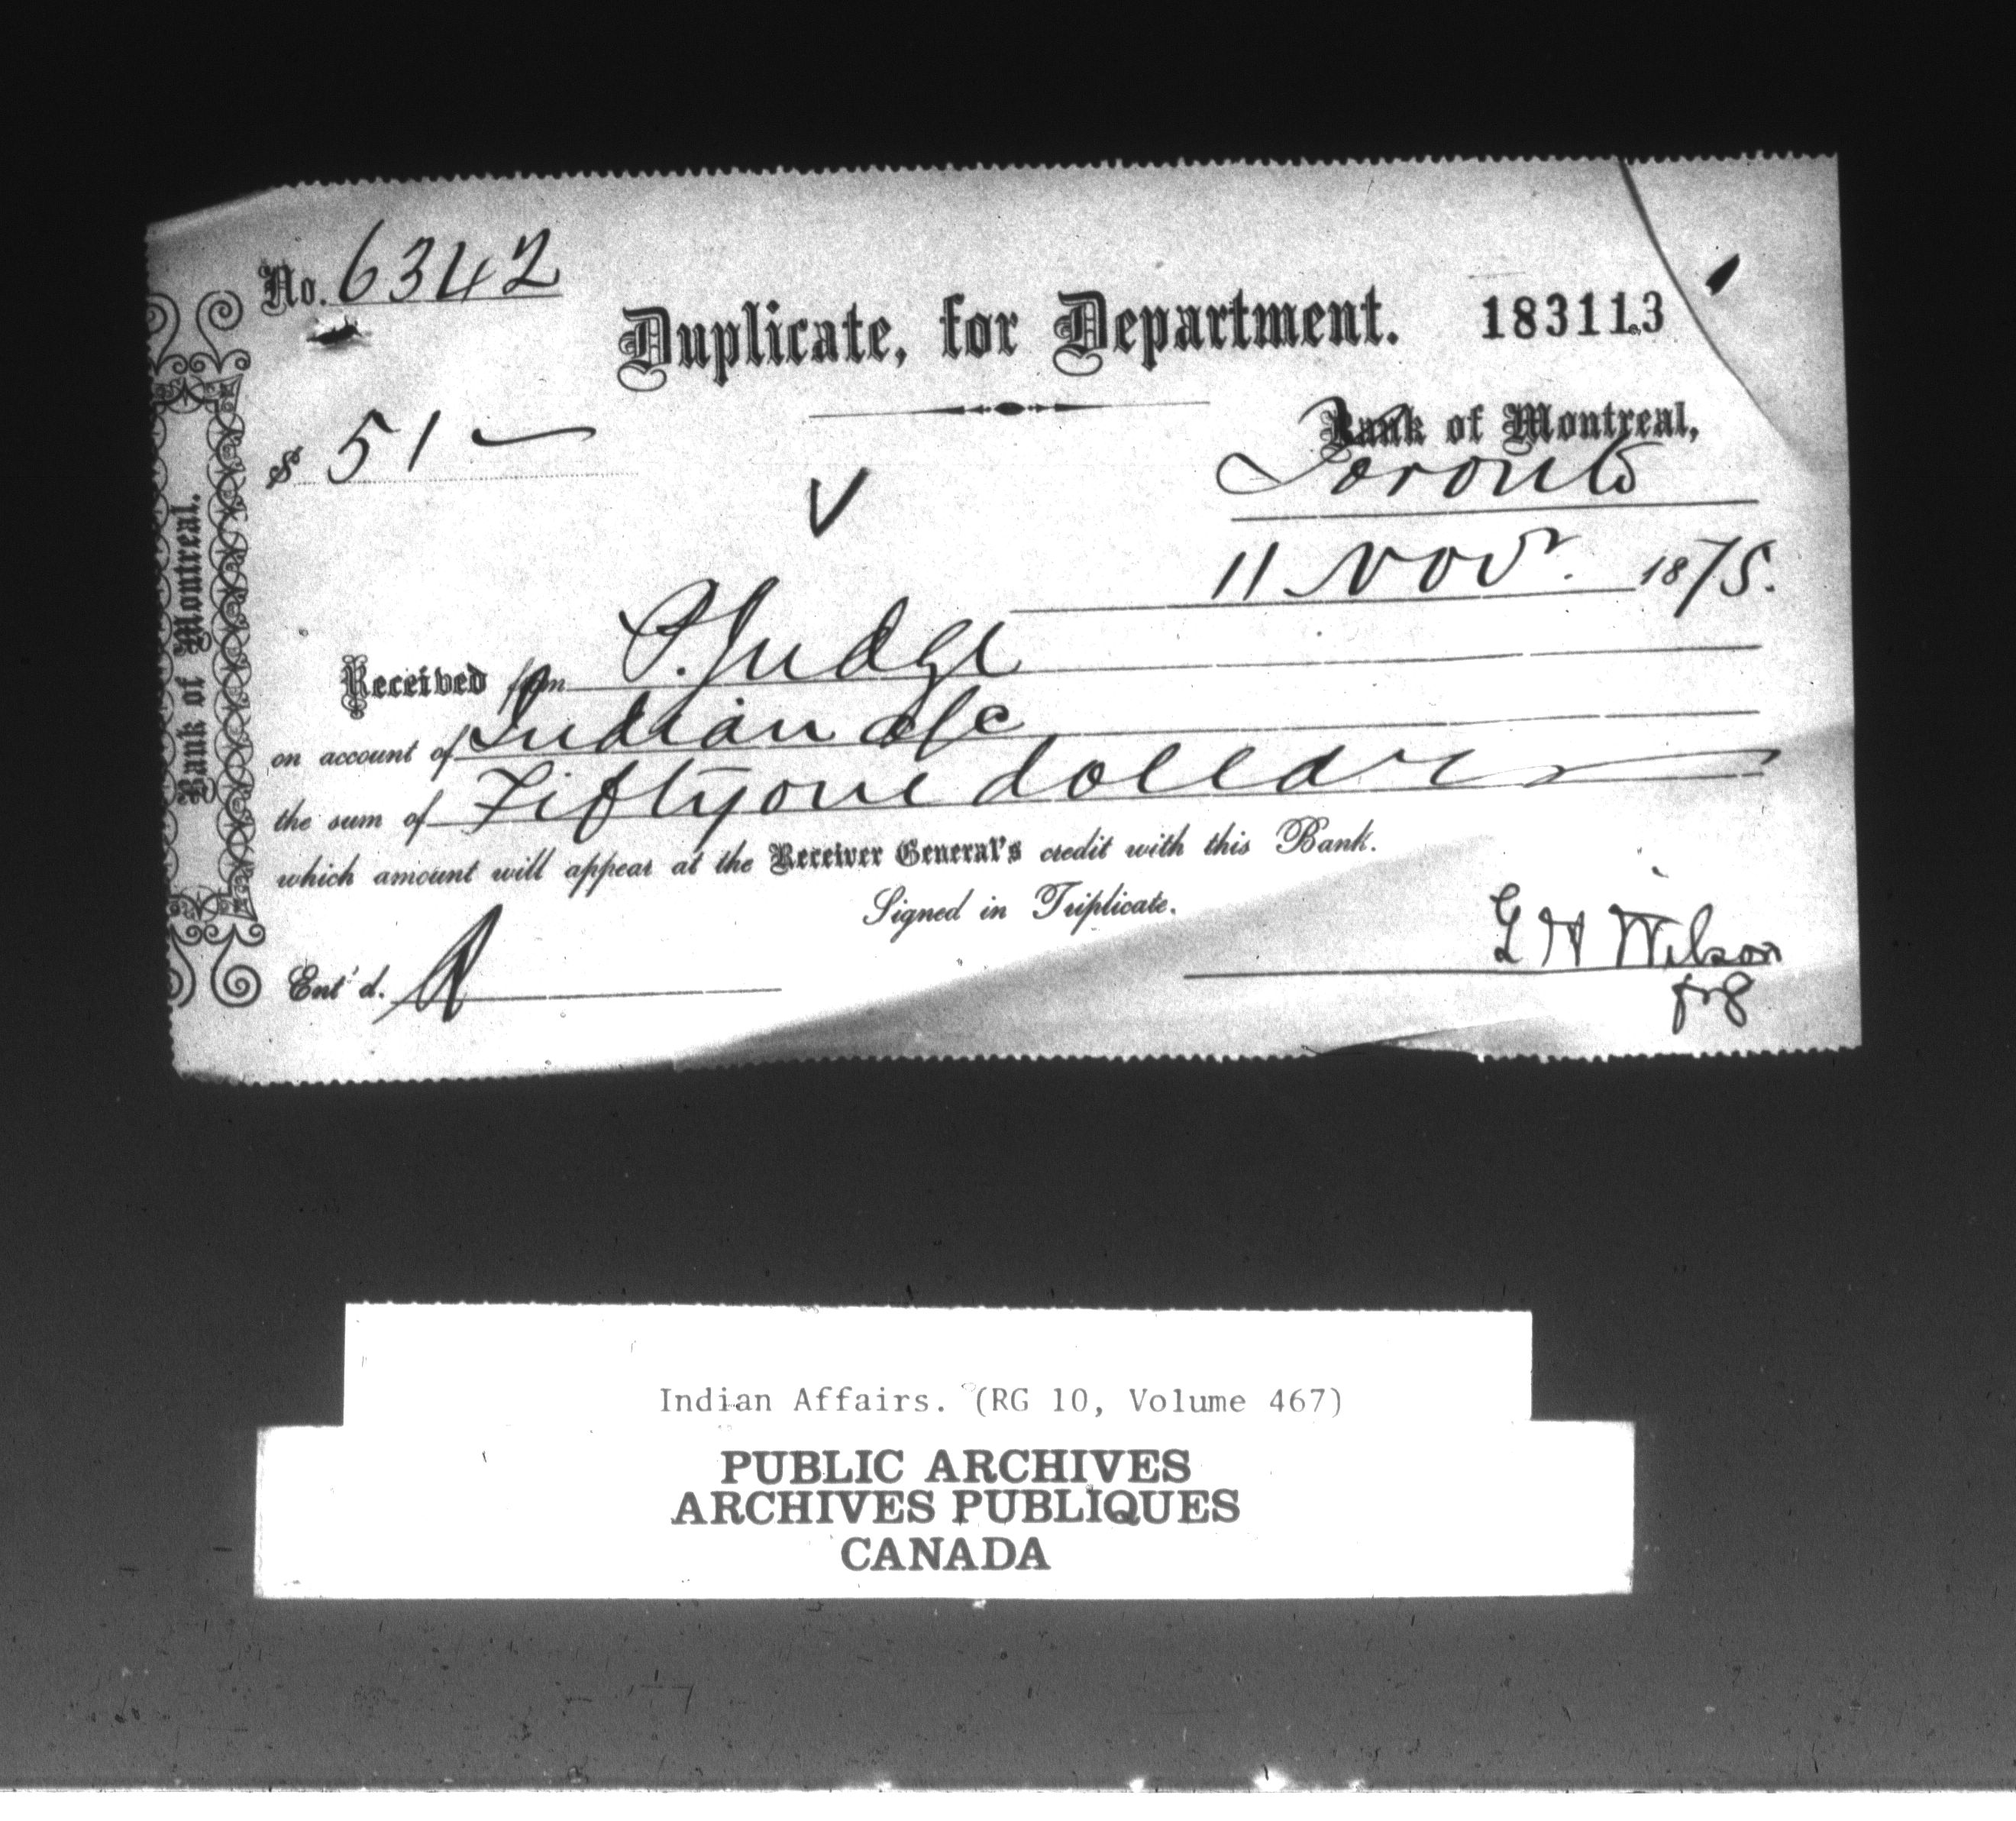 No. 6342
Duplicate, for Department. 183113
$ 51 —
Bank of Montreal,
Toronto
11 Novr. 1875.
Received from P. Judge
on account of Indian a/c
the sum of Fiftyone dollars
which amount will appear at the Receiver General's credit with this Bank.
Signed in Triplicate.
G H Wilson
Ent'd.
Bank of Montreal.
Indian Affairs. (RG 10, Volume 467)
PUBLIC ARCHIVES
ARCHIVES PUBLIQUES
CANADA